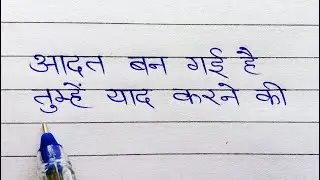 आदत बन गई है
तुम्हें याद करने की